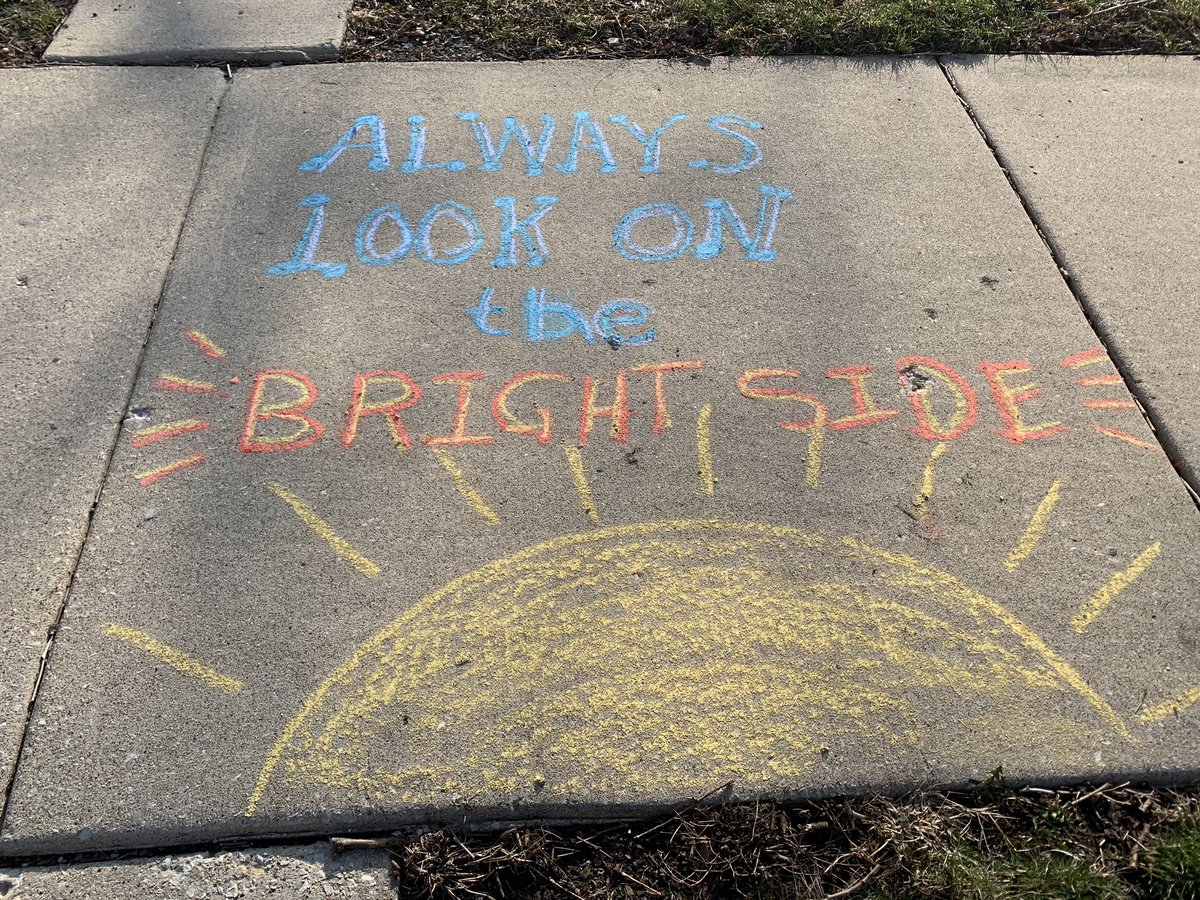 ALWAYS
LOOK ON
the
BRIGHT SIDE